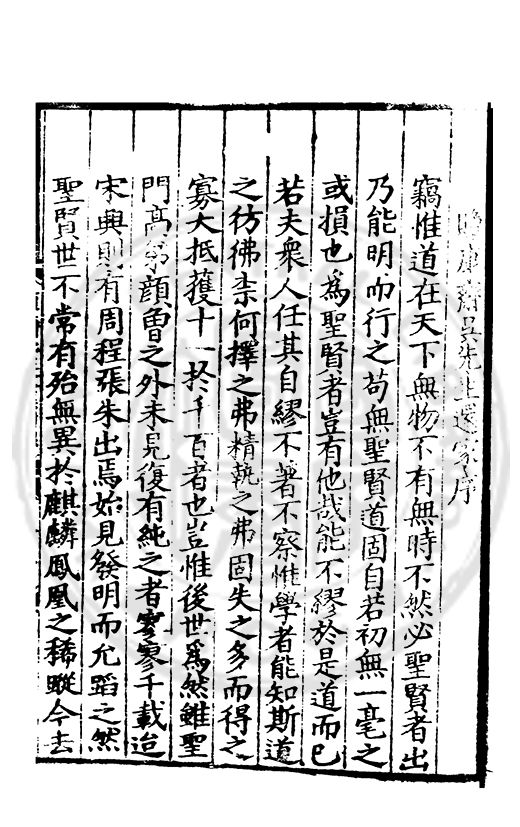 康齋吳先生選家序
竊惟道在天下無物不有無時不然必聖賢者出
乃能明而行之苟無聖賢道固自若初無一毫之
或損也爲聖賢者豈有他哉能不繆於是道而已
若夫衆人任其自繆不著不察惟學者能知斯道
之彷彿柰何擇之弗精執之弗固失之多而得之
寡大抵獲十一於千百者也豈惟後世爲然雖聖
門高弟顔曾之外未見復有純之者寥寥千載迨
宋興則有周程張朱出焉始見發明而允蹈之然
聖賢世不常有殆無異於麒麟鳳凰之稀蹤今去